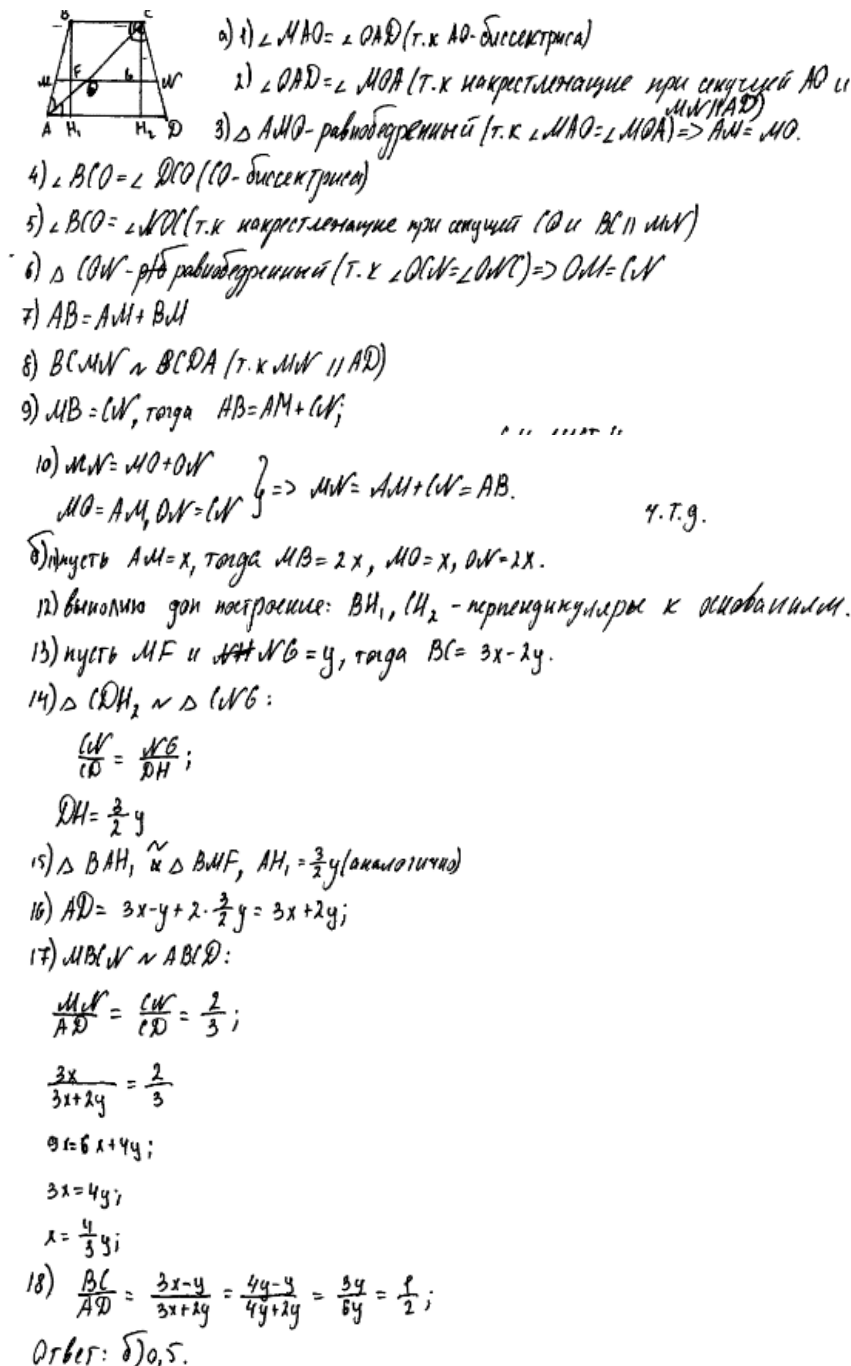 B C
M F O G N
A H₁ H₂ D
а) 1) ∠MAO = ∠OAD (т.к AO-биссектриса)
2) ∠OAD = ∠MOA (т.к накрестлежащие при секущей AO и MN||AD)
3) △AMO - равнобедренный (т.к ∠MAO = ∠MOA) => AM = MO.
4) ∠BCO = ∠DCO (CO-биссектриса)
5) ∠BCO = ∠NOC (т.к накрестлежащие при секущей CO и BC || MN)
6) △CON - равнобедренный (т.к ∠OCN = ∠ONC) => OM = CN
7) AB = AM + BM
8) BCMN ~ BCDA (т.к MN || AD)
9) MB = CN, тогда AB = AM + CN;
10) MN = MO + ON
MO = AM, ON = CN } => MN = AM + CN = AB.
ч.т.д.
б) 11) пусть AM = x, тогда MB = 2x, MO = x, ON = 2x.
12) выполню доп построение: BH₁, CH₂ - перпендикуляры к основаниям.
13) пусть MF и NG = y, тогда BC = 3x - 2y.
14) △CDH₂ ~ △CNG:
CN/CD = NG/DH;
DH = 3/2 y
15) △BAH₁ ~ △BMF, AH₁ = 3/2 y (аналогично)
16) AD = 3x - y + 2 · 3/2 y = 3x + 2y;
17) MBCN ~ ABCD:
MN/AD = CN/CD = 2/3;
3x/(3x + 2y) = 2/3
9x = 6x + 4y;
3x = 4y;
x = 4/3 y;
18) BC/AD = (3x - y)/(3x + 2y) = (4y - y)/(4y + 2y) = 3y/6y = 1/2;
Ответ: б) 0,5.